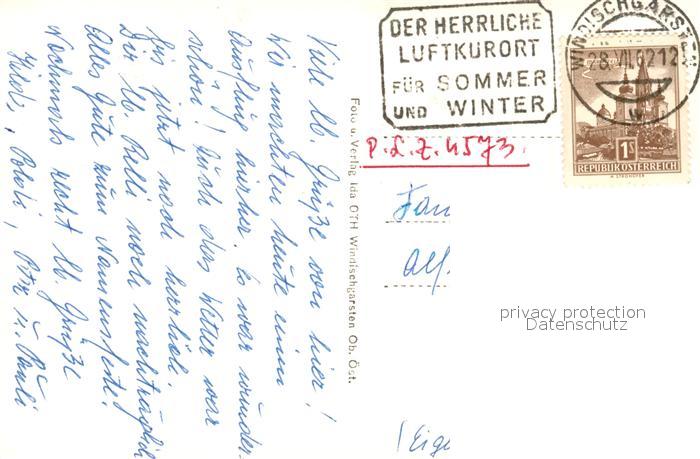 Viele lb. Grüße von hier!
Wir machten heute einen
Ausflug hierher. Es war wunder-
schön! Auch das Wetter war
bis jetzt noch herrlich.
Dir lb. Relli noch nachträglich
alles Gute zum Namensfeste!
Nochmals recht lb. Grüße
Foto u. Verlag Ida OTH Windischgarsten Ob. Öst.
DER HERRLICHE
LUFTKURORT
FÜR SOMMER
UND WINTER
WINDISCHGARSTEN
28.VII.62 12
1S
REPUBLIK ÖSTERREICH
P.L.Z. 4573.
Fam
Alf.
privacy protection
Datenschutz
(Eige